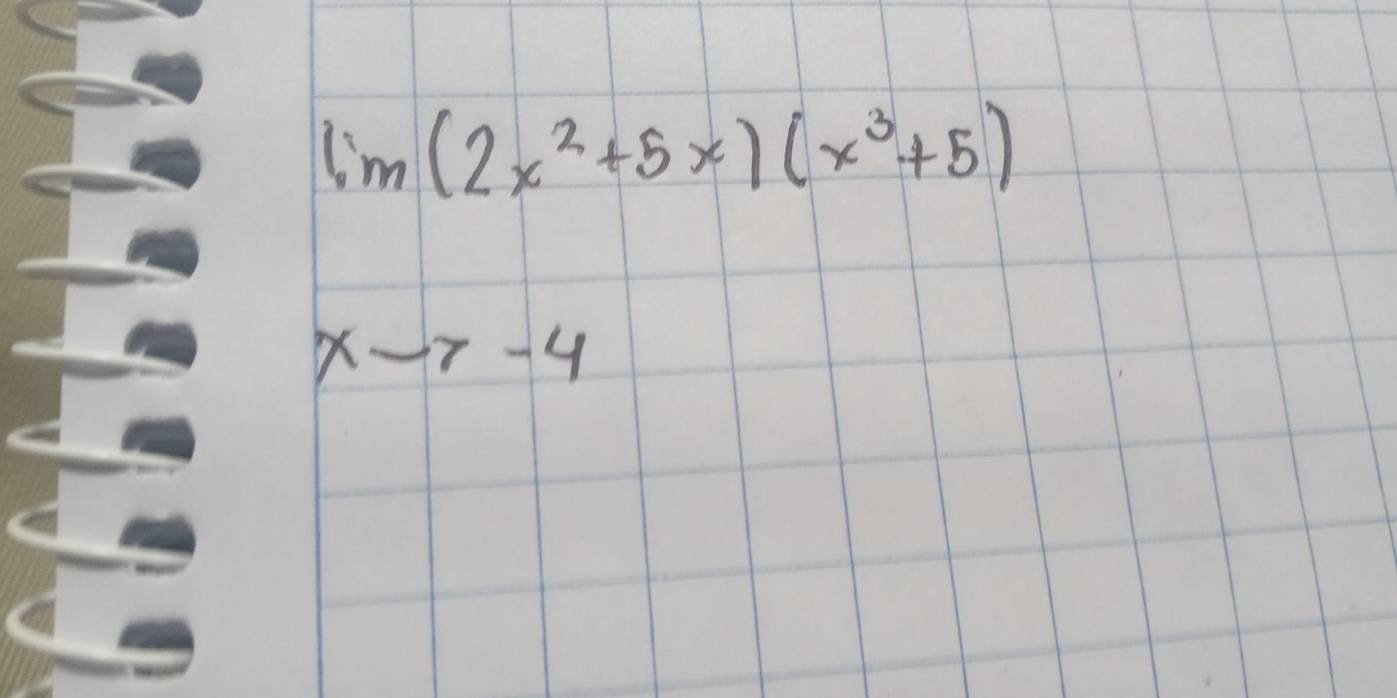 lim (2x² + 5x) (x³ + 5)
x → -4